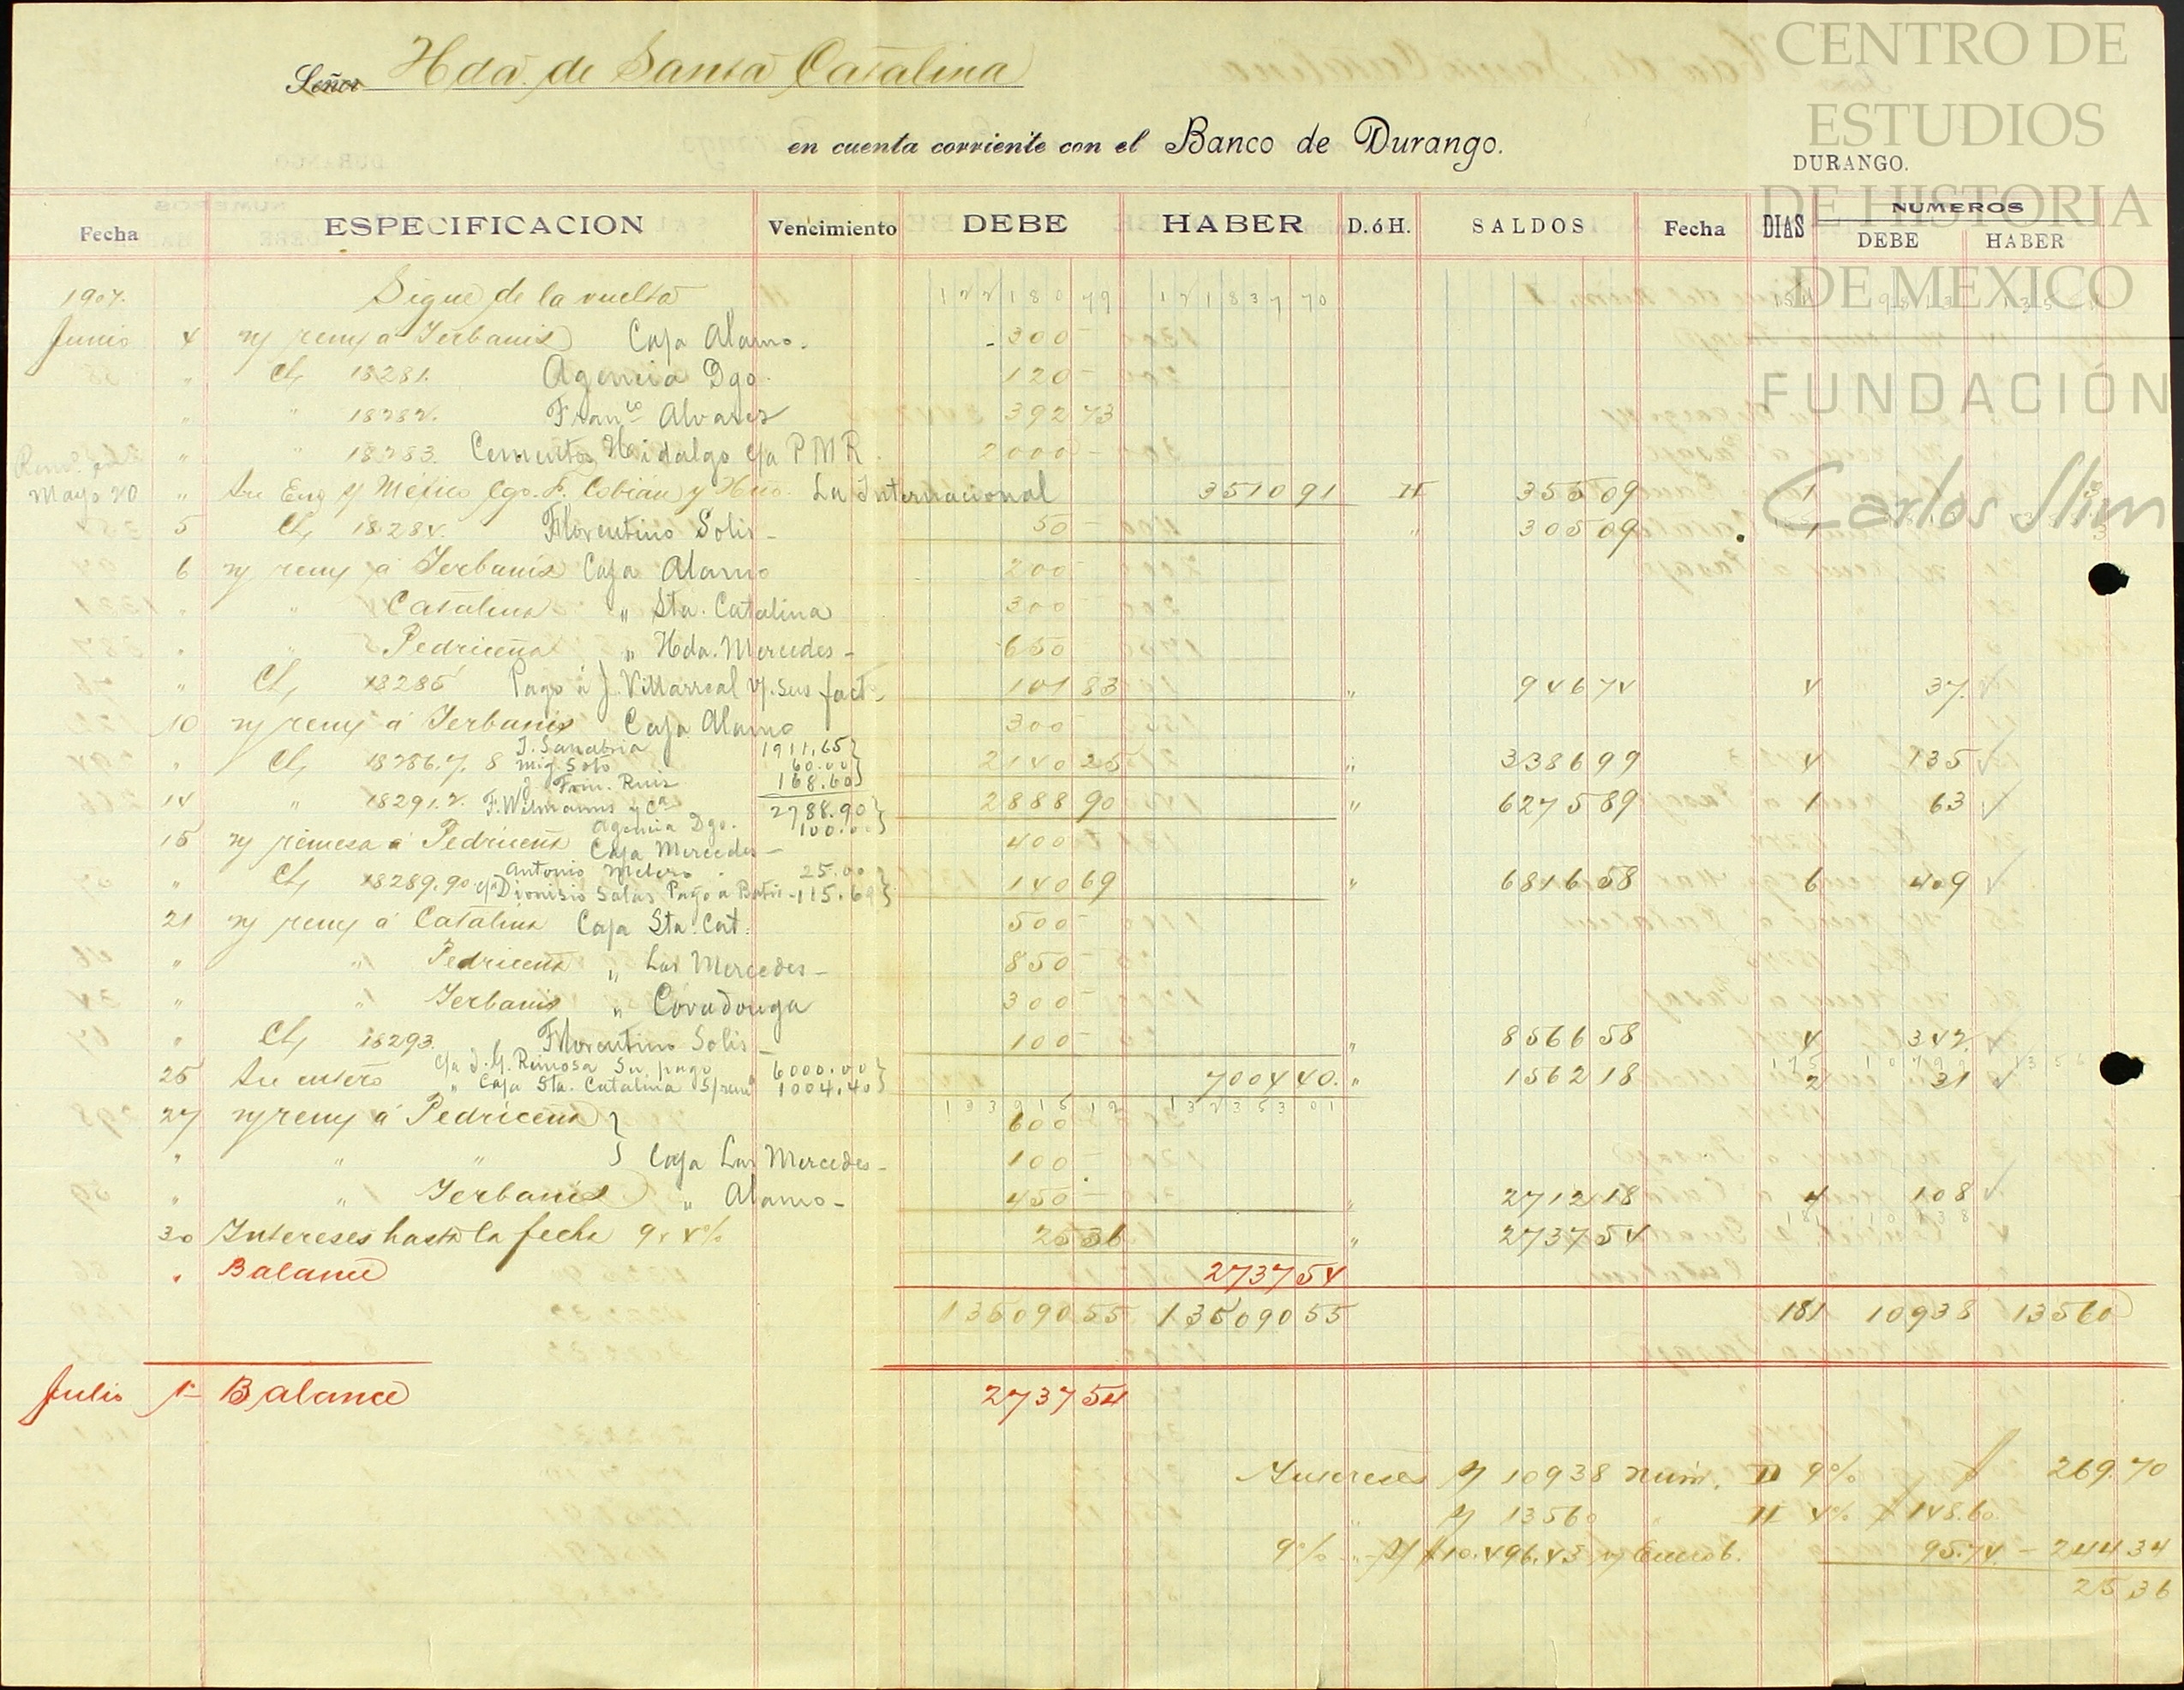 Señor Hda. de Santa Catalina
en cuenta corriente con el Banco de Durango.
DURANGO.
CENTRO DE
ESTUDIOS
DE HISTORIA
DE MEXICO
FUNDACIÓN
Carlos Slim
Fecha ESPECIFICACION Vencimiento DEBE HABER D.ó H. SALDOS Fecha DIAS NUMEROS DEBE HABER
1907. Sigue de la vuelta 122180 79 121837 70
Junio 4 n/ rem/ a Yerbanis Caja Alamo. 300 -
" Ch/ 18281. Agencia Dgo. 120 -
" " 18282. Franco Alvarez 392 73
" " 18283. Cementos Hidalgo c/a P M R. 2000 -
Mayo 20 " Su Ent/ Mexico cgo. F. Cobian y Hno. La Internacional 3510 91 H 355 09 1 3
5 Ch/ 18284. Florentino Solis - 50 - " 305 09 1 3
6 n/ rem/ a Yerbanis Caja Alamo 200 -
" " Catalina " Sta. Catalina 300 -
" " Pedriceña " Hda. Mercedes - 650
" Ch/ 18285 Pago a J. Villarreal v/. sus fact. 101 83 " 946 74 4 37.
10 n/ rem/ a Yerbanis Caja Alamo 300 -
" Ch/ 18286.7. 8 J. Sanabria 1911.65
Mig Soto 60.00
J Fran. Ruiz 168.60
2140 25 " 3386 99 4 135
14 " 18291.2. F. Wilmanns y Ca 2788.90
Agencia Dgo. 100.00
2888 90 " 6275 89 1 63
15 n/ remesa a Pedriceña Caja Mercedes - 400 -
" Ch/ 18289.90 Antonio Melero 25.00
c/a Dionisio Salas Pago a Batis - 115.69
140 69 " 6816 58 6 409
21 n/ rem/ a Catalina Caja Sta. Cat. 500 -
" " Pedriceña " Las Mercedes - 850 -
" " Yerbanis " Covadonga 300 -
" Ch/ 18293. Florentino Solis - 100 - " 8566 58 4 342
25 Su entero c/a J. G. Reinosa Su pago 6000.00
" Caja Sta. Catalina S/rem 1004.40
7004 40. " 1562 18 2 31
133915 12 132353 01
27 n/ rem/ a Pedriceña 600
" " " Caja Las Mercedes - 100 -
" " Yerbanis " Alamo - 450 - " 2712 18 4 108
30 Intereses hasta la fecha 9 & 4% 25 36 " 2737 54
" Balance 2737 54
135090 55 135090 55 181 10938 13560
Julio 1º Balance 2737 54
Intereses s/ 10938 núm. D 9% $ 269.70
" s/ 13560 " H 4% $ 148.60
9% " s/ $10.496.43 95.74 - 244 34
25 36